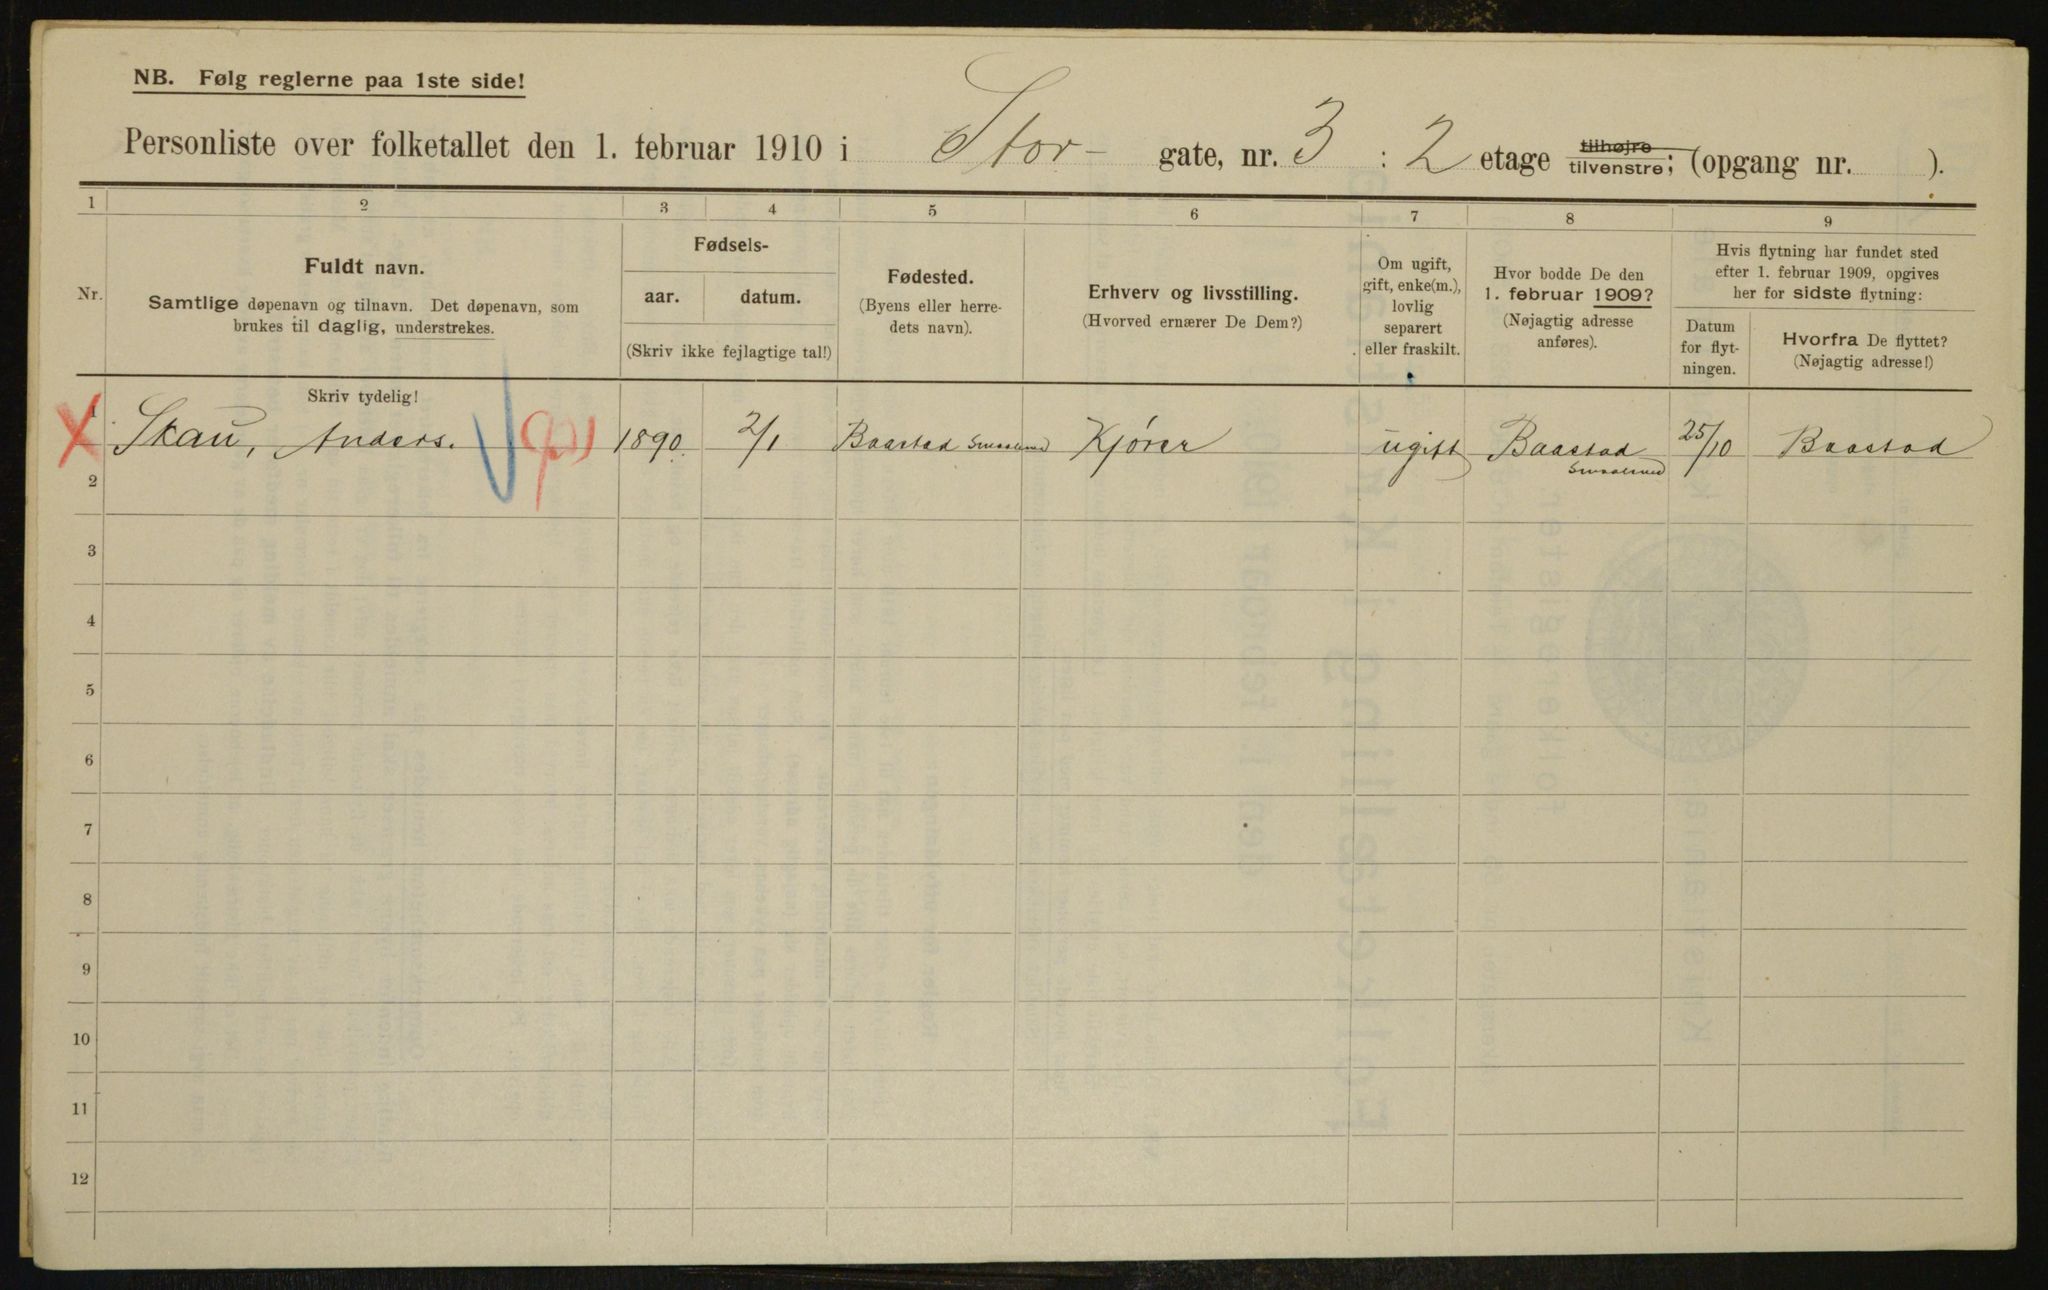 NB. Følg reglerne paa 1ste side!
Personliste over folketallet den 1. februar 1910 i Stor- gate, nr. 3 : 2 etage tilhøjre tilvenstre; (opgang nr. ).
1 2 3 4 5 6 7 8 9
Nr.
Fuldt navn.
Samtlige døpenavn og tilnavn. Det døpenavn, som
brukes til daglig, understrekes.
Fødsels-
aar. datum.
(Skriv ikke fejlagtige tal!)
Fødested.
(Byens eller herre-
dets navn).
Erhverv og livsstilling.
(Hvorved ernærer De Dem?)
Om ugift,
gift, enke(m.),
lovlig
separert
eller fraskilt.
Hvor bodde De den
1. februar 1909?
(Nøjagtig adresse
anføres).
Hvis flytning har fundet sted
efter 1. februar 1909, opgives
her for sidste flytning:
Datum
for flyt-
ningen.
Hvorfra De flyttet?
(Nøjagtig adresse!)
Skriv tydelig!
1 Skau, Anders. 1890. 2/1 Baastad Kjører ugift Baastad 25/10 Baastad
2
3
4
5
6
7
8
9
10
11
12